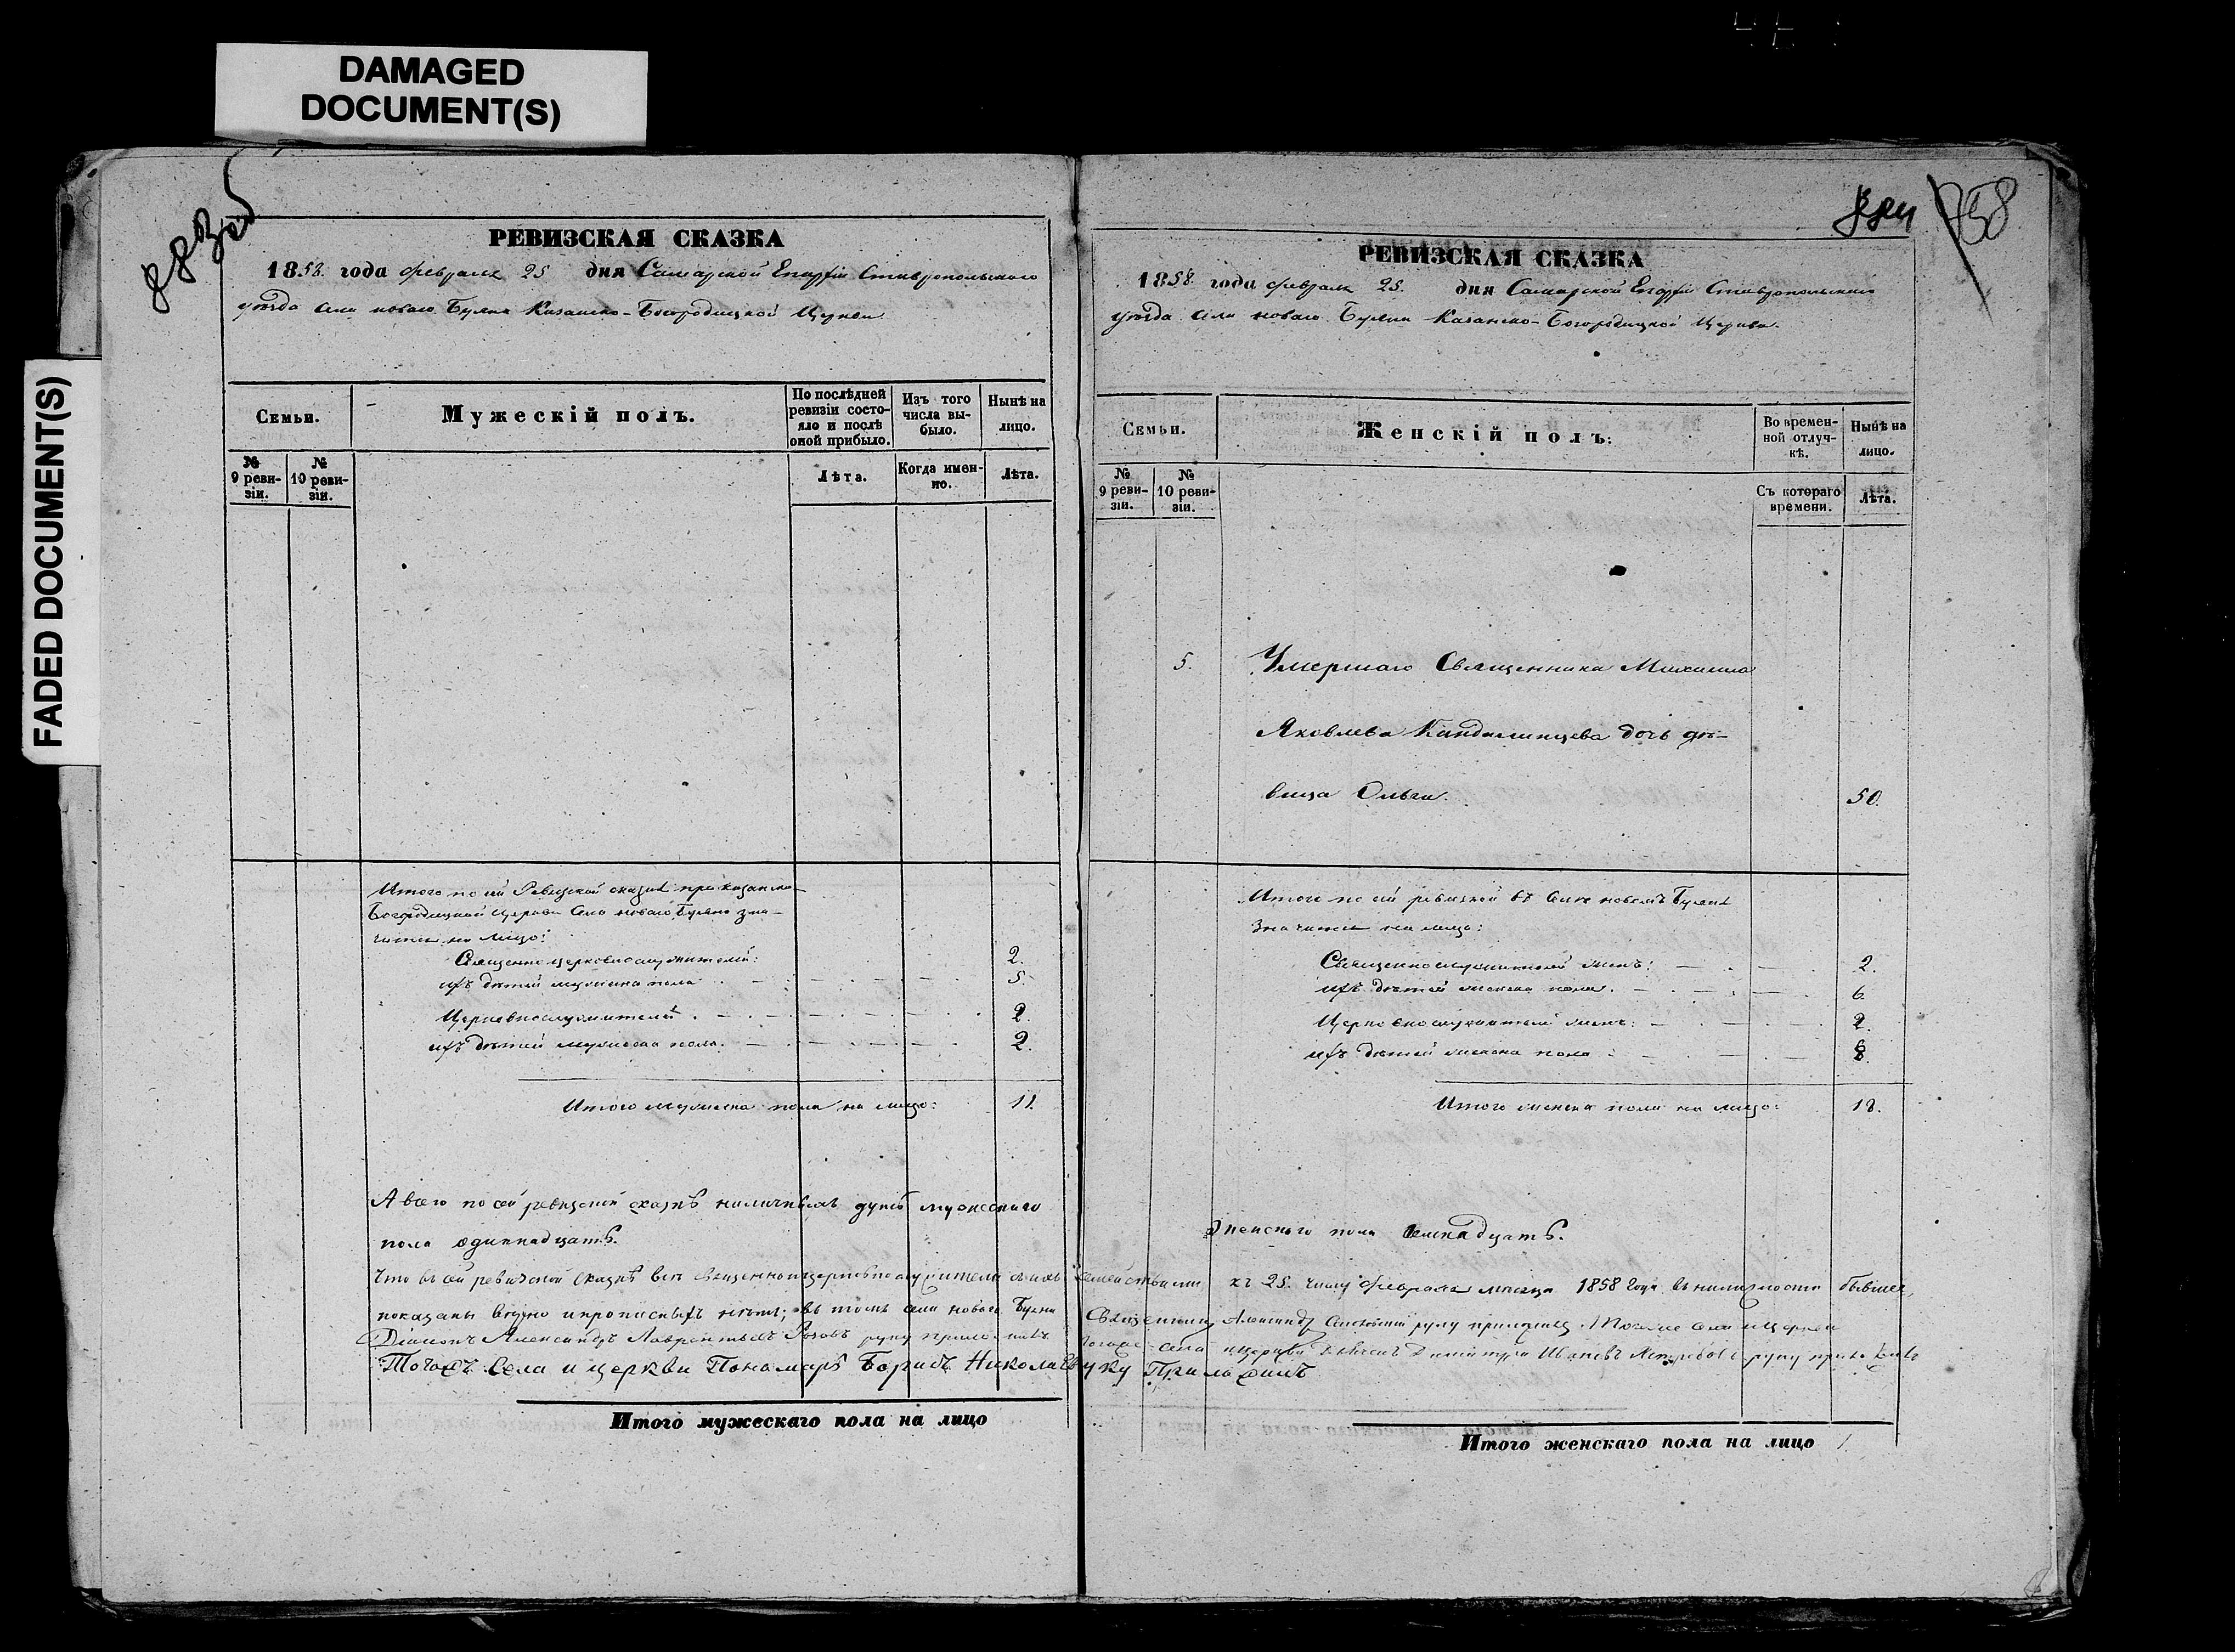 DAMAGED
DOCUMENT(S)
FADED DOCUMENT(S)
РЕВИЗСКАЯ СКАЗКА
1858. года февраля 25 дня Самарской Епархіи Ставропольскаго
уѣзда села новаго Буяна Казанско-Богородицкой Церкви
Семьи.
Мужескій полъ.
По послѣдней ревизіи состояло и послѣ оной прибыло.
Изъ того числа выбыло.
Нынѣ на лицо.
№ 9 ревизіи.
№ 10 ревизіи.
Лѣта.
Когда именно.
Лѣта.
Итого по сей Ревизской сказкѣ при казанско-
Богородицкой церкви села новаго Буяна зна-
чится на лицо:
Священно церковнослужителей: 2.
ихъ дѣтей мужеска пола 5.
Церковнослужителей 2.
ихъ дѣтей мужеска пола. 2.
Итого мужеска пола на лицо: 11.
А всего по сей ревизской сказкѣ наличныхъ душъ мужескаго
пола одиннадцать.
Итого мужескаго пола на лицо
884
158
РЕВИЗСКАЯ СКАЗКА
1858. года февраля 25. дня Самарской Епархіи Ставропольскаго
уѣзда села новаго Буяна Казанско-Богородицкой Церкви.
Семьи.
Женскій полъ:
Во временной отлучкѣ.
Нынѣ на лицо.
№ 9 ревизіи.
№ 10 ревизіи.
Съ котораго времени.
Лѣта.
5. Умершаго Священника Михаила
Яковлева дочь дѣ-
вица Ольга. 50.
Итого по сей ревизкой въ селѣ новомъ Буянѣ
значится на лицо:
Священнослужителей женъ: 2.
ихъ дѣтей женска пола. 6.
Церковнослужителей женъ: 2.
ихъ дѣтей женска пола 8.
Итого женска пола на лицо: 18.
женскаго пола семнадцать.
Что въ сей ревизской сказкѣ всѣ священноцерковнослужители съ ихъ семействами къ 25. числу февраля мѣсяца 1858 года въ наличности бывшіе,
показаны вѣрно и прописныхъ нѣтъ; въ томъ села новаго Буяна Священникъ Александръ руку приложилъ. Тогоже села и церкви
Діаконъ Александръ Лаврентьевъ Розовъ руку приложилъ тогоже села и церкви Дьячекъ Димитрій Ивановъ руку приложилъ
Тогожъ Села и церкви Пономарь Борисъ Николаевъ руку Приложилъ
Итого женскаго пола на лицо 1.